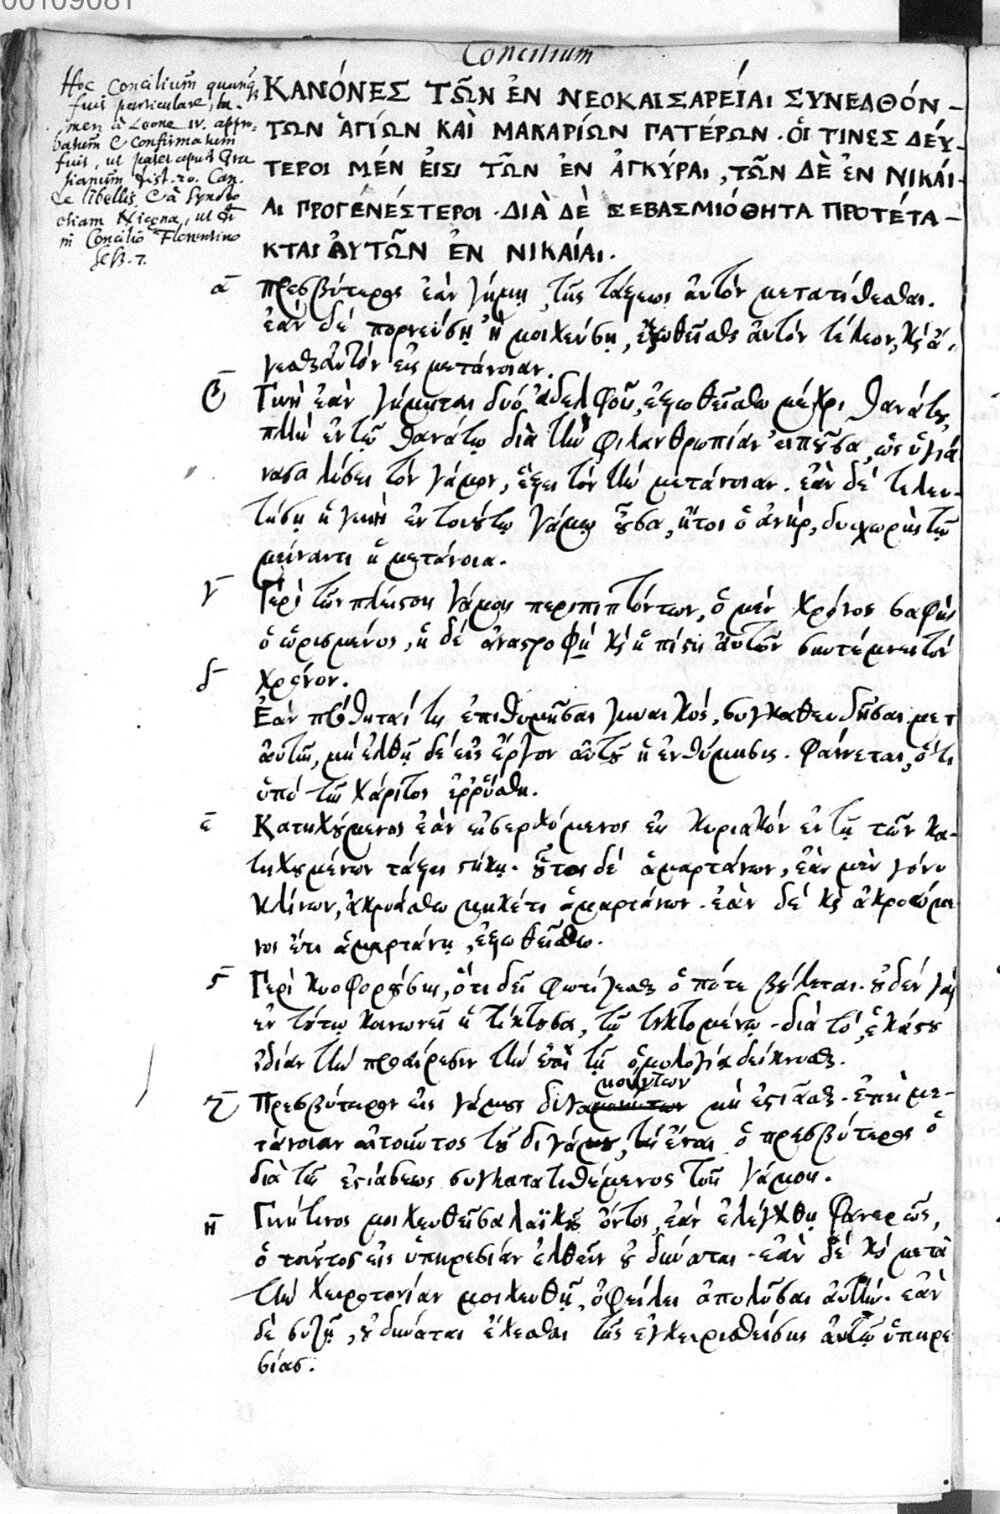 00109081
Concilium
Hoc Concilium quamvis
fuit particulare, ta-
men à Leone IV. appro-
batum & confirmatum
fuit, ut patet apud Gra
tianum dist. 20. Can.
de libellis, & à Synodo
etiam Nicena, ut
in Concilio Florentino
Seß. 7.
ΚΑΝΌΝΕΣ ΤΩ͂Ν ἘΝ ΝΕΟΚΑΙΣΑΡΕΊΑΙ ΣΥΝΕΛΘΌΝ-
ΤΩΝ ἉΓΊΩΝ ΚΑῚ ΜΑΚΑΡΊΩΝ ΠΑΤΈΡΩΝ. ὉΊ ΤΙΝΕΣ ΔΕΎ-
ΤΕΡΟΙ ΜΈΝ ἘΙΣΙ ΤΩ͂Ν ἘΝ ἈΓΚΎΡΑΙ, ΤΩ͂Ν ΔῈ ἘΝ ΝΙΚΑΊ-
ΑΙ ΠΡΟΓΕΝΈΣΤΕΡΟΙ. ΔΙᾺ ΔῈ ΣΕΒΑΣΜΙΌΘΗΤΑ ΠΡΟΤΈΤΑ-
ΚΤΑΙ ἈΥΤΩ͂Ν ἘΝ ΝΙΚΑΊΑΙ.
α Πρεσβύτερος ἐὰν γήμῃ, τῆς τάξεως ἀυτὸν μετατίθεσθαι.
ἐὰν δέ πορνεύσῃ ἢ μοιχεύσῃ, ἐξωθεῖσθαι ἀυτόν τέλεον, καὶ ἄ-
γεσθαι ἀυτόν εἰς μετάνοιαν.
β Γυνὴ ἐὰν γήμηται δυό ἀδελφοῦς, ἐξωθείσθω μέχρι θανάτου,
πλὴν ἐν τῷ θανάτῳ διὰ τὴν φιλανθρωπίαν εἰποῦσα, ὡς ὑγιά
νασα λύσει τὸν γάμον, ἕξει τὴν μετάνοιαν. ἐὰν δέ τελευ-
τήσῃ ἡ γυνὴ ἐν τοιούτῳ γάμῳ οὖσα, ἤτοι ὁ ἀνὴρ, δυσχερὴς τῷ
μείναντι ἡ μετάνοια.
γ Περὶ τῶν πλείστοις γάμοις περιπιπτόντων, ὁ μέν χρόνος σαφὴς
ὁ ὡρισμένος, ἡ δέ ἀναστροφή καὶ ἡ πίστις ἀυτῶν συντέμνει τόν
δ χρόνον.
Ἐὰν πρόθηταί τις ἐπιθυμῆσαι γυναικός, συγκαθευδῆσαι μετ
ἀυτῆς, μὴ ἔλθῃ δέ εἰς ἔργον αὐτοῦ ἡ ἐνθύμησις. φαίνεται, ὅτι
ὑπό τῆς χάριτος ἐῤῥύσθη.
ε Κατηχούμενος ἐὰν εἰσερχόμενος εἰς κυριακόν ἐν τῇ τῶν κα-
τηχουμένων τάξει στήκῃ. οὗτος δέ ἁμαρτάνων, ἐὰν μὲν γόνυ
κλίνων, ἀκροάσθω μηκέτι ἁμαρτάνων. ἐὰν δέ καὶ ἀκροώμε
νος ἔτι ἁμαρτάνῃ, ἐξωθείσθω.
ϛ Περὶ κυοφορούσης, ὅτι δεῖ φωτίζεσθαι ὁ πότε βούλεται. οὐδέν γὰρ
ἐν τούτῳ κοινωνεῖ ἡ τίκτουσα, τῷ τικτομένῳ. διὰ τό, ἑκάστου
ἰδίαν τὴν προαίρεσιν τὴν ἐπὶ τῇ ὁμολογίᾳ δείκνυσθαι.
μούντων
ζ Πρεσβύτερον εἰς γάμους διγαμούντων μὴ ἑστιᾶσθαι. ἐπεὶ με-
τάνοιαν αἰτοῦντος τοῦ διγάμου, τίς ἔσται ὁ πρεσβύτερος ὁ
διὰ τῆς ἑστιάσεως συγκατατιθέμενος τοῖς γάμοις.
η Γυνή τινος μοιχευθεῖσα λαϊκοῦ ὄντος, ἐάν ἐλέγχθῃ φανερῶς,
ὁ τοιοῦτος εἰς ὑπηρεσίαν ἐλθεῖν οὐ δύναται. ἐὰν δέ καὶ μετὰ
τὴν χειροτονίαν μοιχευθῇ, ὀφείλει ἀπολῦσαι ἀυτὴν. ἐὰν
δὲ συζῇ, οὐ δύναται ἔχεσθαι τῆς ἐγχειρισθείσης ἀυτῷ ὑπηρε
σίας.